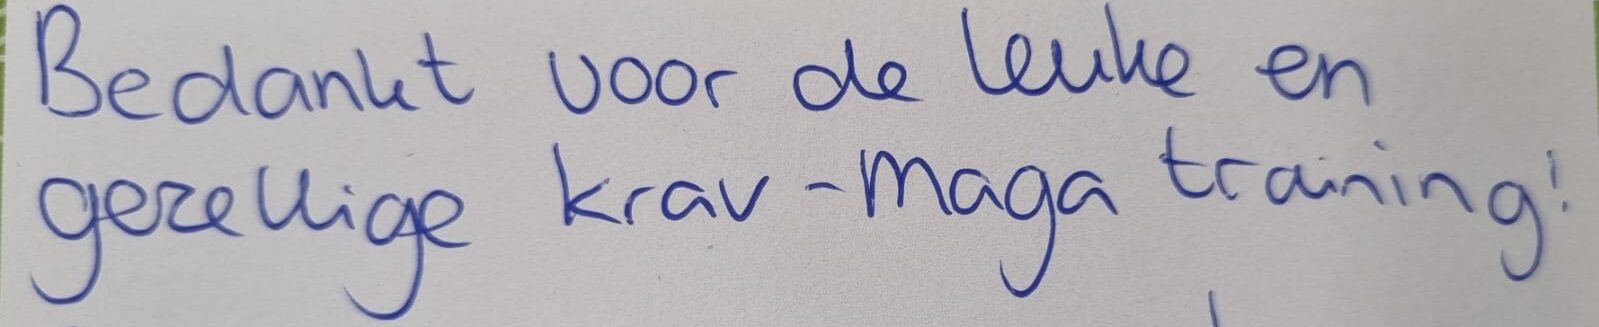 Bedankt voor de leuke en
gezellige krav-maga training!